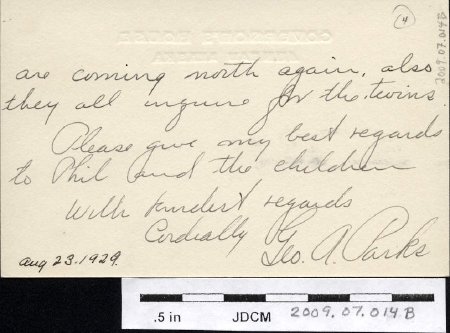 4
GOVERNOR'S HOUSE
2009.07.014B
are coming north again, also
they all inquire for the twins
Please give my best regards
to Phil and the children
With kindest regards
Cordially Geo. A. Parks
Aug 23.1929.
.5 in JDCM 2009.07.014B